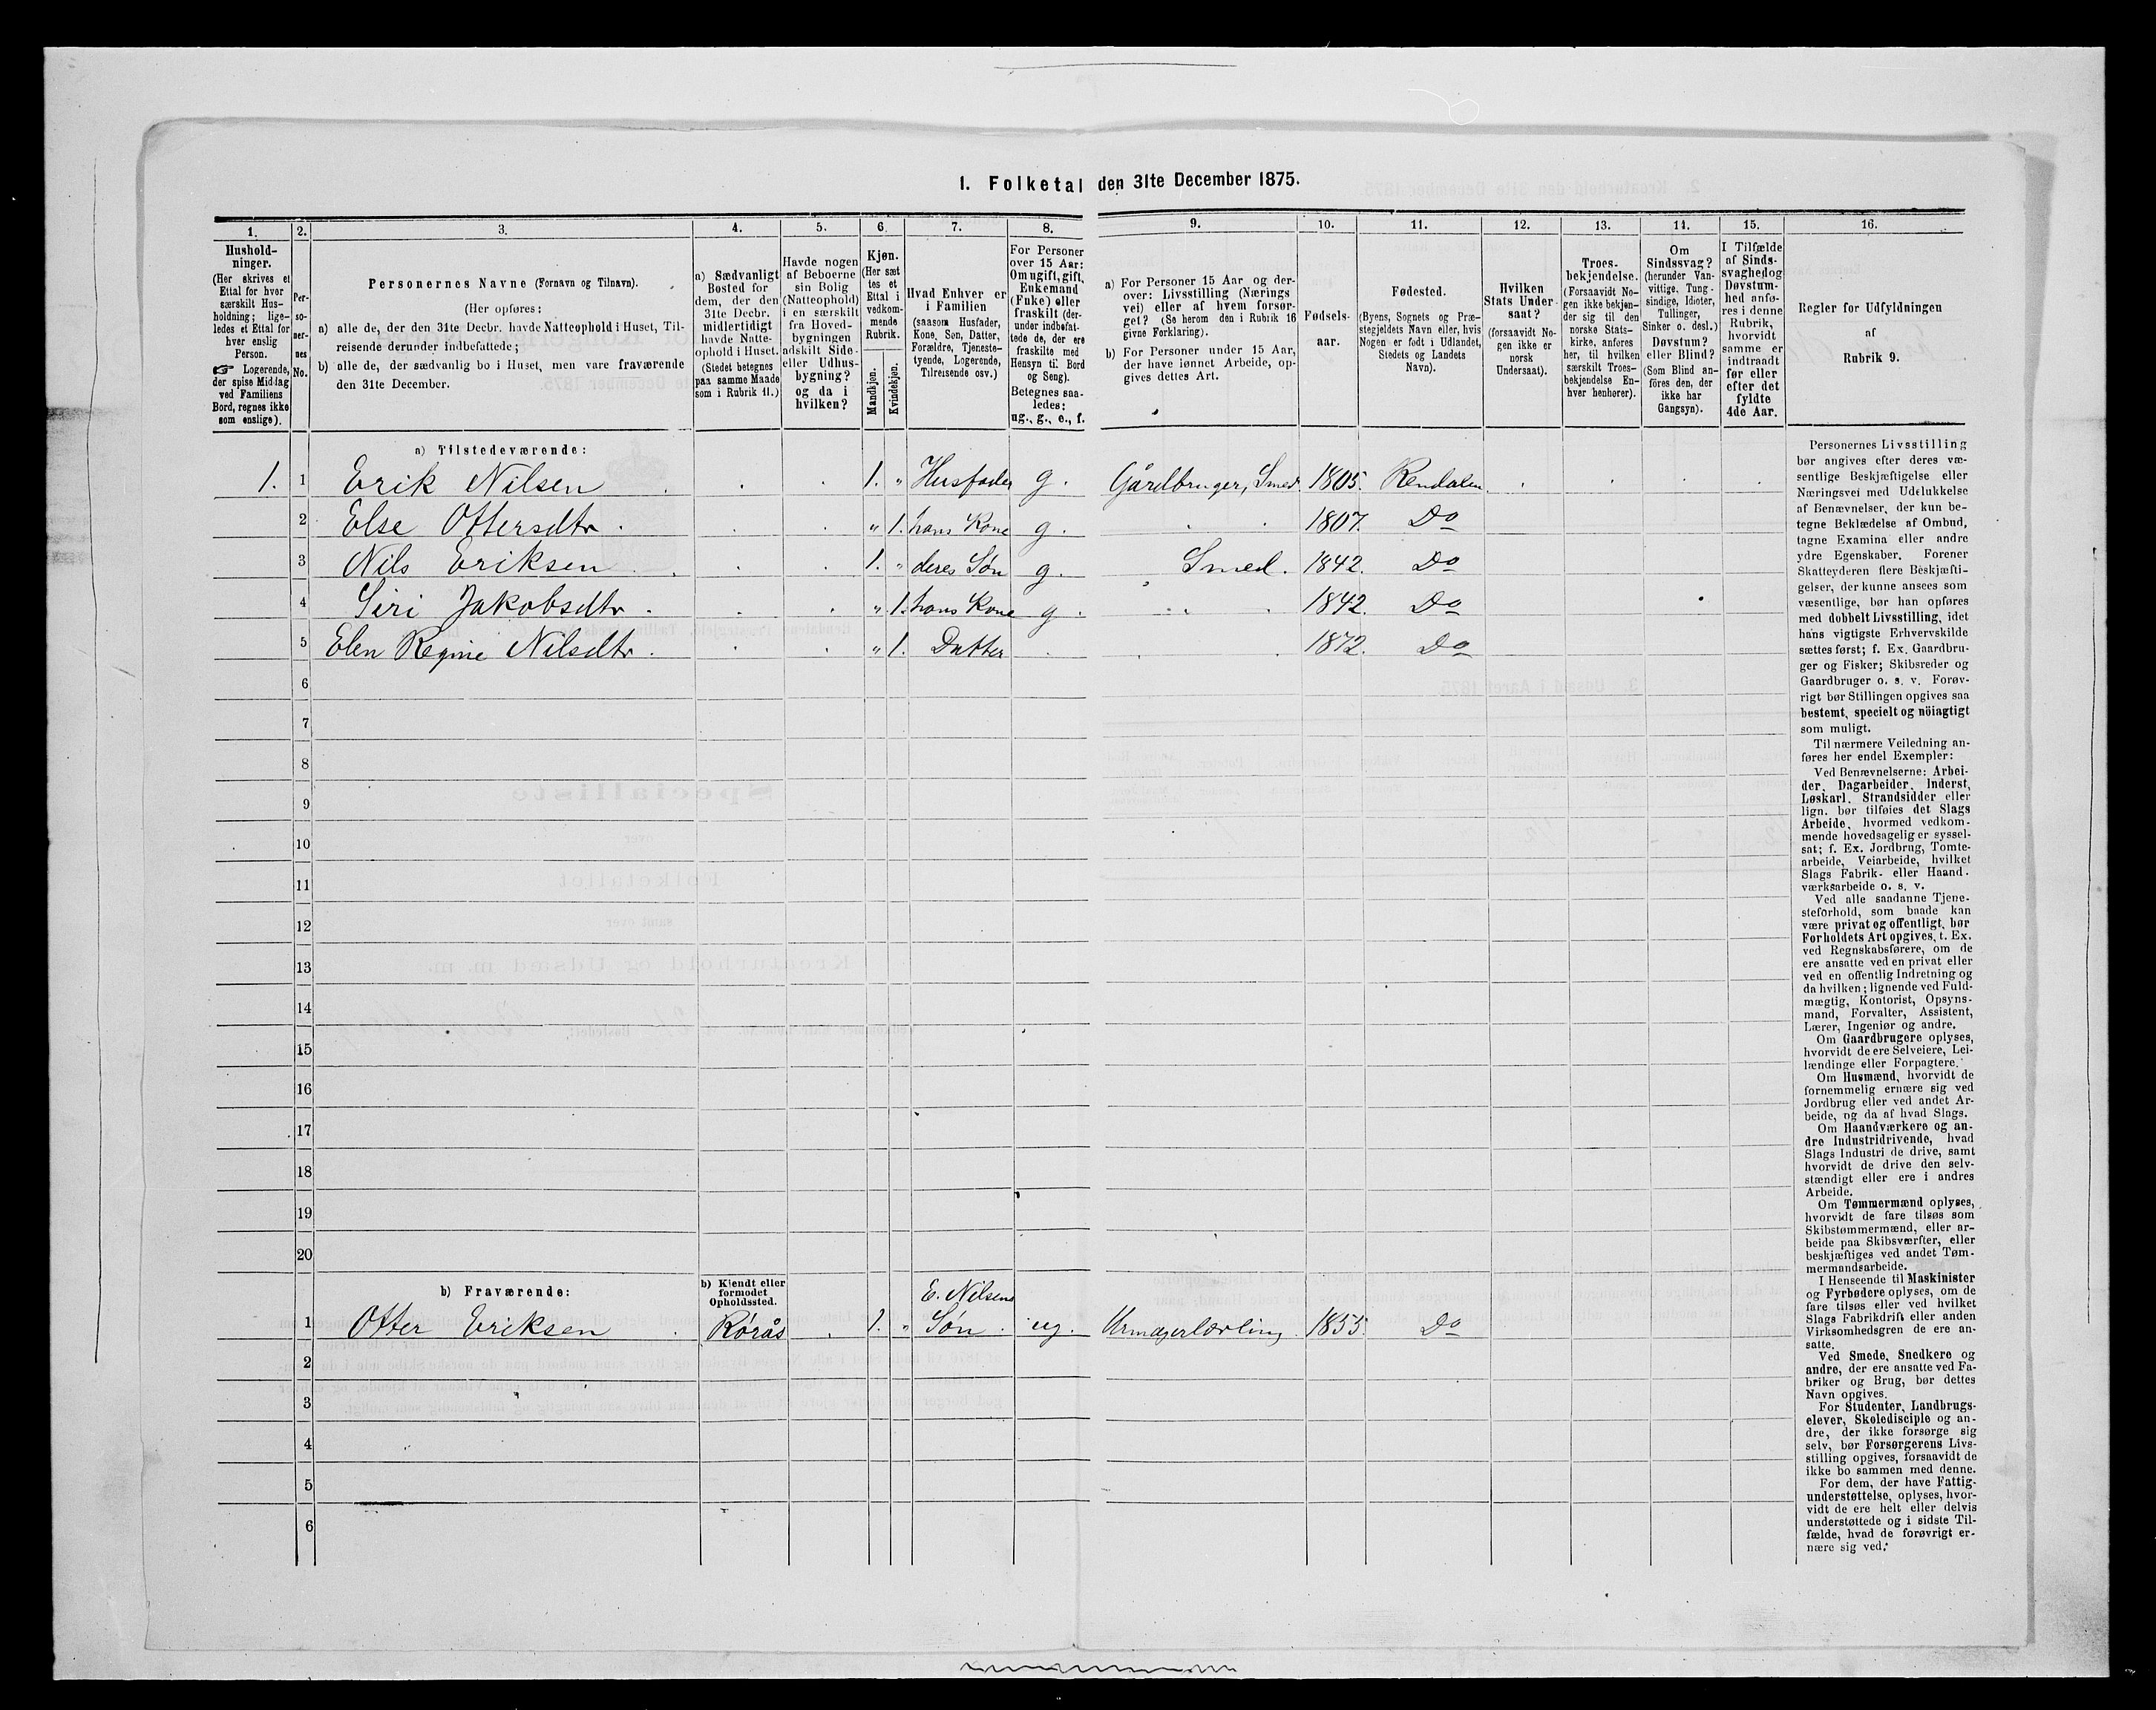 1. Folketal den 31te December 1875.
1. 2. 3. 4. 5. 6. 7. 8. 9. 10. 11. 12. 13. 14. 15. 16.
Hushold-
ninger.
(Her skrives et
Ettal for hver
særskilt Hus-
holdning; lige-
ledes et Ettal for
hver enslig
Person.
☞ Logerende,
der spise Middag
ved Familiens
Bord, regnes ikke
som enslige).
Per-
so-
ner-
nes
No.
Personernes Navne (Fornavn og Tilnavn).
(Her opføres:
a) alle de, der den 31te Decbr. havde Natteophold i Huset, Til-
reisende derunder indbefattede;
b) alle de, der sædvanlig bo i Huset, men vare fraværende
den 31te December.
a) Sædvanligt
Bosted for
dem, der den
31te Decbr.
midlertidigt
havde Natte-
ophold i Huset.
(Stedet betegnes
paa samme Maade
som i Rubrik 11.)
Havde nogen
af Beboerne
sin Bolig
(Natteophold)
i en særskilt
fra Hoved-
bygningen
adskilt Side-
eller Udhus-
bygning?
og da i
hvilken?
Kjøn.
(Her sæt
tes et
Ettal i
vedkom-
mende
Rubrik.
Mandkjøn.
Kvindekjøn.
Hvad Enhver er
i Familien
(saasom Husfader,
Kone, Søn, Datter,
Forældre, Tjeneste-
tyende, Logerende,
Tilreisende osv.)
For Personer
over 15 Aar:
Om ugift, gift,
Enkemand
(Enke) eller
fraskilt (der-
under indbefat-
tede de, der ere
fraskilte med
Hensyn til Bord
og Seng).
Betegnes saa-
ledes:
ug., g., e., f.
a) For Personer 15 Aar og der-
over: Livsstilling (Nærings
vei) eller af hvem forsør-
get? (Se herom den i Rubrik 16
givne Forklaring).
b) For Personer under 15 Aar,
der have lønnet Arbeide, op-
gives dettes Art.
Fødsels-
aar.
Fødested.
(Byens, Sognets og Præ-
stegjeldets Navn eller, hvis
Nogen er født i Udlandet,
Stedets og Landets
Navn).
Hvilken
Stats Under-
saat?
(forsaavidt No-
gen ikke er
norsk
Undersaat).
Troes-
bekjendelse.
(Forsaavidt No-
gen ikke bekjen-
der sig til den
norske Stats-
kirke, anføres
her, til hvilken
særskilt Troes-
bekjendelse En-
hver henhører).
Om
Sindssvag?
(herunder Van-
vittige, Tung-
sindige, Idioter,
Tullinger,
Sinker o. desl.)
Døvstum?
eller Blind?
(Som Blind an-
føres den, der
ikke har
Gangsyn).
I Tilfælde
af Sinds-
svaghed og
Døvstum-
hed anfø-
res i denne
Rubrik,
hvorvidt
samme er
indtraadt
før eller
efter det
fyldte
4de Aar.
Regler for Udfyldningen
af
Rubrik 9.
a) Tilstedeværende:
1. 1 Erik Nilsen 1. „ Husfader g. Gårdbruger, Smed. 1805. Rendalen
2 Else Ottersdtr. „ 1. hans Kone g. 1807. Do
3 Nils Eriksen 1. „ deres Søn g. Smed. 1842. Do
4 Siri Jakobsdtr. „ 1. hans Kone g. 1842. Do
5 Elen Regine Nilsdtr. „ 1. Datter 1872. Do
6
7
8
9
10
11
12
13
14
15
16
17
18
19
20
b) Fraværende:
b) Kjendt eller
formodet
Opholdssted.
E. Nilsens
1 Otter Eriksen Rørås 1. „ Søn. ug. Urmagerlærling. 1855. Do
2
3
4
5
6
Personernes Livsstilling
bør angives efter deres væ-
sentlige Beskjæftigelse eller
Næringsvei med Udelukkelse
af Benævnelser, der kun be-
tegne Beklædelse af Ombud,
tagne Examina eller andre
ydre Egenskaber. Forener
Skatteyderen flere Beskjæfti-
gelser, der kunne ansees som
væsentlige, bør han opføres
med dobbelt Livsstilling, idet
hans vigtigste Erhvervskilde
sættes først; f. Ex. Gaardbru-
ger og Fisker; Skibsreder og
Gaardbruger o. s. v. Forøv-
rigt bør Stillingen opgives saa
bestemt, specielt og nöiagtigt
som muligt.
Til nærmere Veiledning an-
føres her endel Exempler:
Ved Benævnelserne: Arbei-
der, Dagarbeider, Inderst,
Løskarl, Strandsidder eller
lign. bør tilføies det Slags
Arbeide, hvormed vedkom-
mende hovedsagelig er syssel-
sat; f. Ex. Jordbrug, Tomte-
arbeide, Veiarbeide, hvilket
Slags Fabrik- eller Haand-
værksarbeide o. s. v.
Ved alle saadanne Tjene-
steforhold, som baade kan
være privat og offentligt, bør
Forholdets Art opgives, t. Ex.
ved Regnskabsførere, om de
ere ansatte ved en privat eller
ved en offentlig Indretning og
da hvilken; lignende ved Fuld-
mægtig, Kontorist, Opsyns-
mand, Forvalter, Assistent,
Lærer, Ingeniør og andre.
Om Gaardbrugere oplyses,
hvorvidt de ere Selveiere, Lei-
lændinge eller Forpagtere.
Om Husmænd, hvorvidt de
fornemmelig ernære sig ved
Jordbrug eller ved andet Ar-
beide, og da af hvad Slags.
Om Haandværkere og an-
dre Industridrivende, hvad
Slags Industri de drive, samt
hvorvidt de drive den selv-
stændigt eller ere i andres
Arbeide.
Om Tømmermænd oplyses,
hvorvidt de fare tilsøs som
Skibstømmermænd, eller ar-
beide paa Skibsværfter, eller
beskjæftiges ved andet Tøm-
mermandsarbeide.
I Henseende til Maskinister
og Fyrbødere oplyses, om de
fare tilsøs eller ved hvilket
Slags Fabrikdrift eller anden
Virksomhedsgren de ere an-
satte.
Ved Smede, Snedkere og
andre, der ere ansatte ved Fa-
briker og Brug, bør dettes
Navn opgives.
For Studenter, Landbrugs-
elever, Skoledisciple og an-
dre, der ikke forsørge sig
selv, bør Forsørgerens Livs-
stilling opgives, forsaavidt de
ikke bo sammen med denne.
For dem, der have Fattig-
understøttelse, oplyses, hvor-
vidt de ere helt eller delvis
understøttede og i sidste Til-
fælde, hvad de forøvrigt er-
nære sig ved.